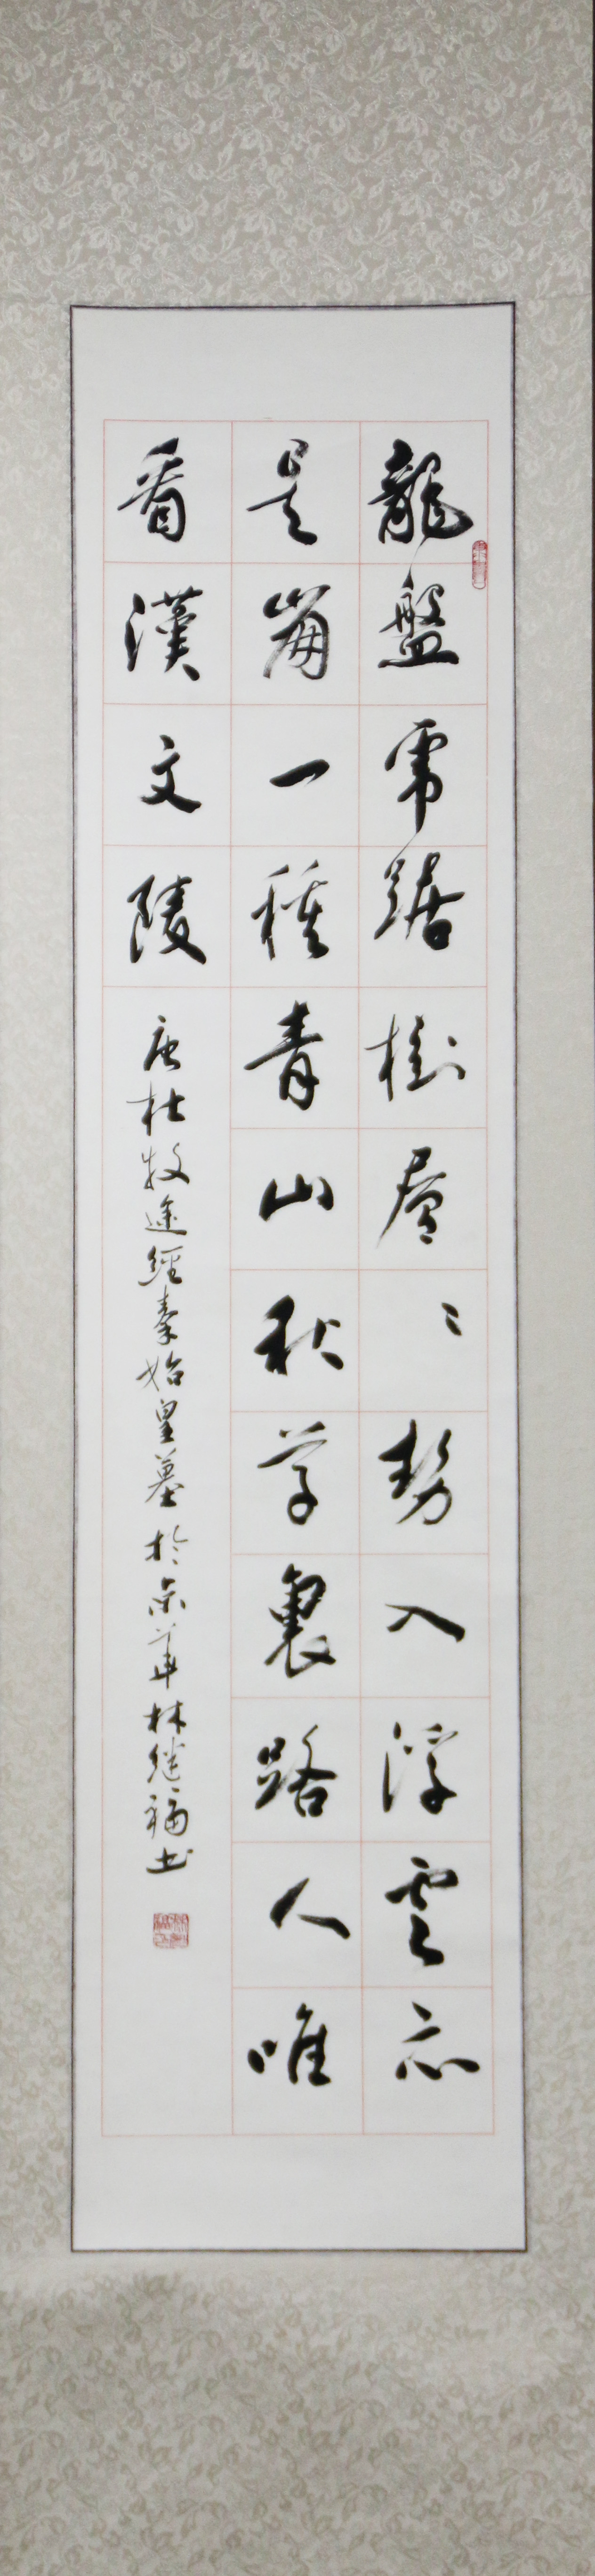 龍盤虎踞樹層〻勢入浮雲亦
是崩一種青山秋草裏路人唯
看漢文陵 唐杜牧途經秦始皇墓 於京華 林福书